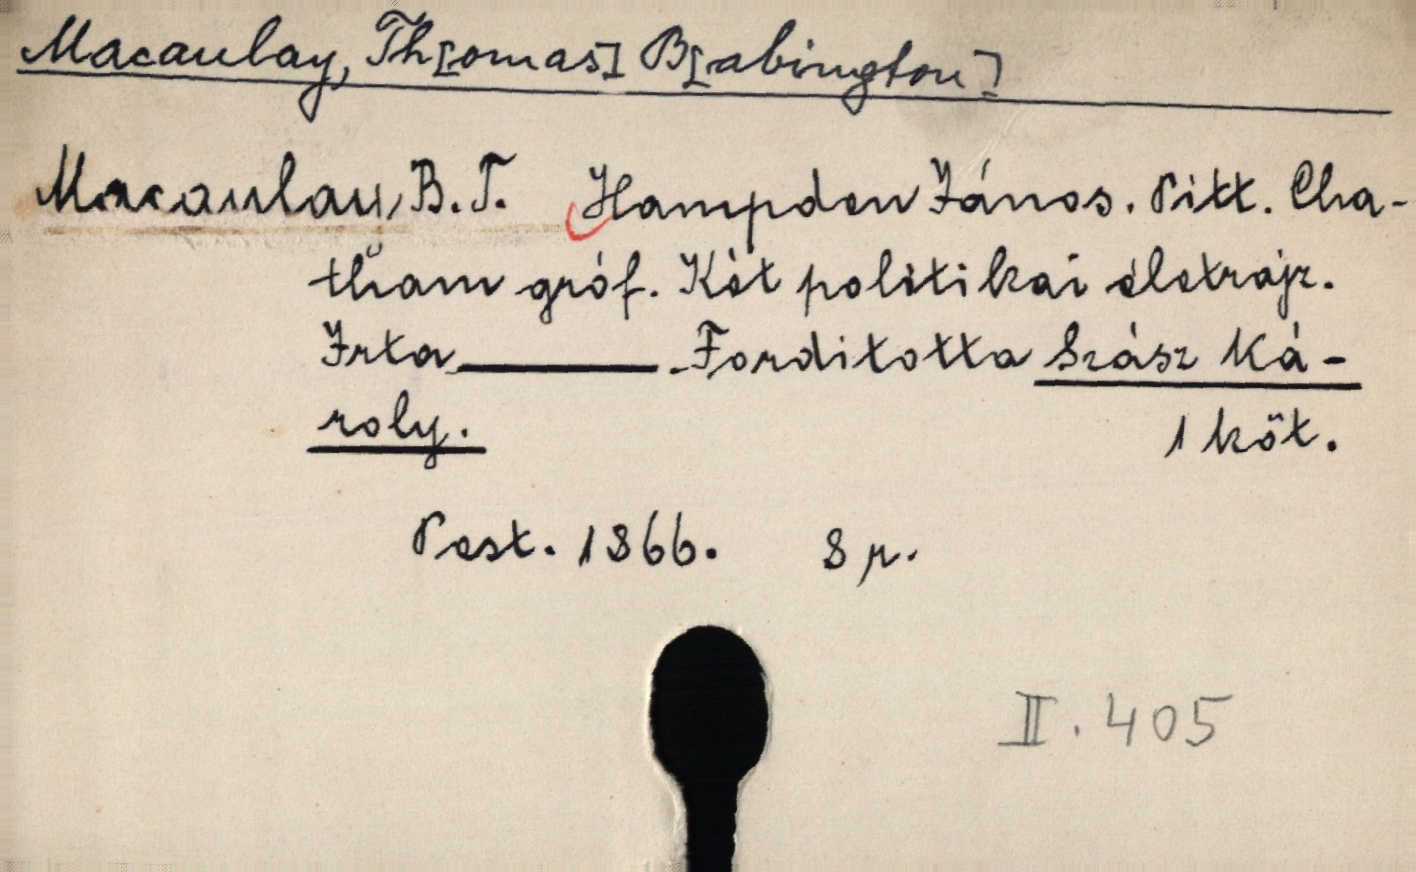 Macaulay, Th[omas] B[abington]
Macaulay, B. T. Hampden János. Pitt. Cha-
tham gróf. Két politikai életrajz.
Irta ——— . Forditotta Szász Ká-
roly. 1 köt.
Pest. 1866. 8 r.
II. 405